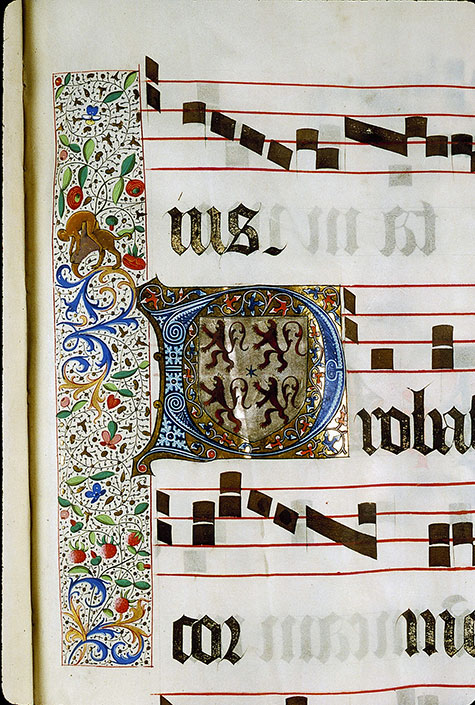 ius.
Probat
cor me